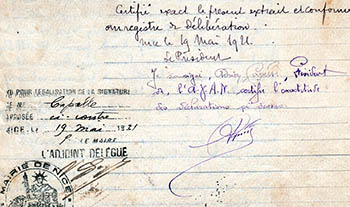 Certifié exact le présent extrait et conforme
au registre de Délibération
Nice le 19 Mai 1921.
Le Président
Je soussigné Président
de l'A.J.A.N. certifie l'exactitude
des déclarations
VU POUR LEGALISATION DE LA SIGNATURE
de M. Capelle
APPOSÉE ci-contre
NICE, LE 19 Mai 1921
P. LE MAIRE
L'ADJOINT DÉLÉGUÉ
MAIRIE DE NICE